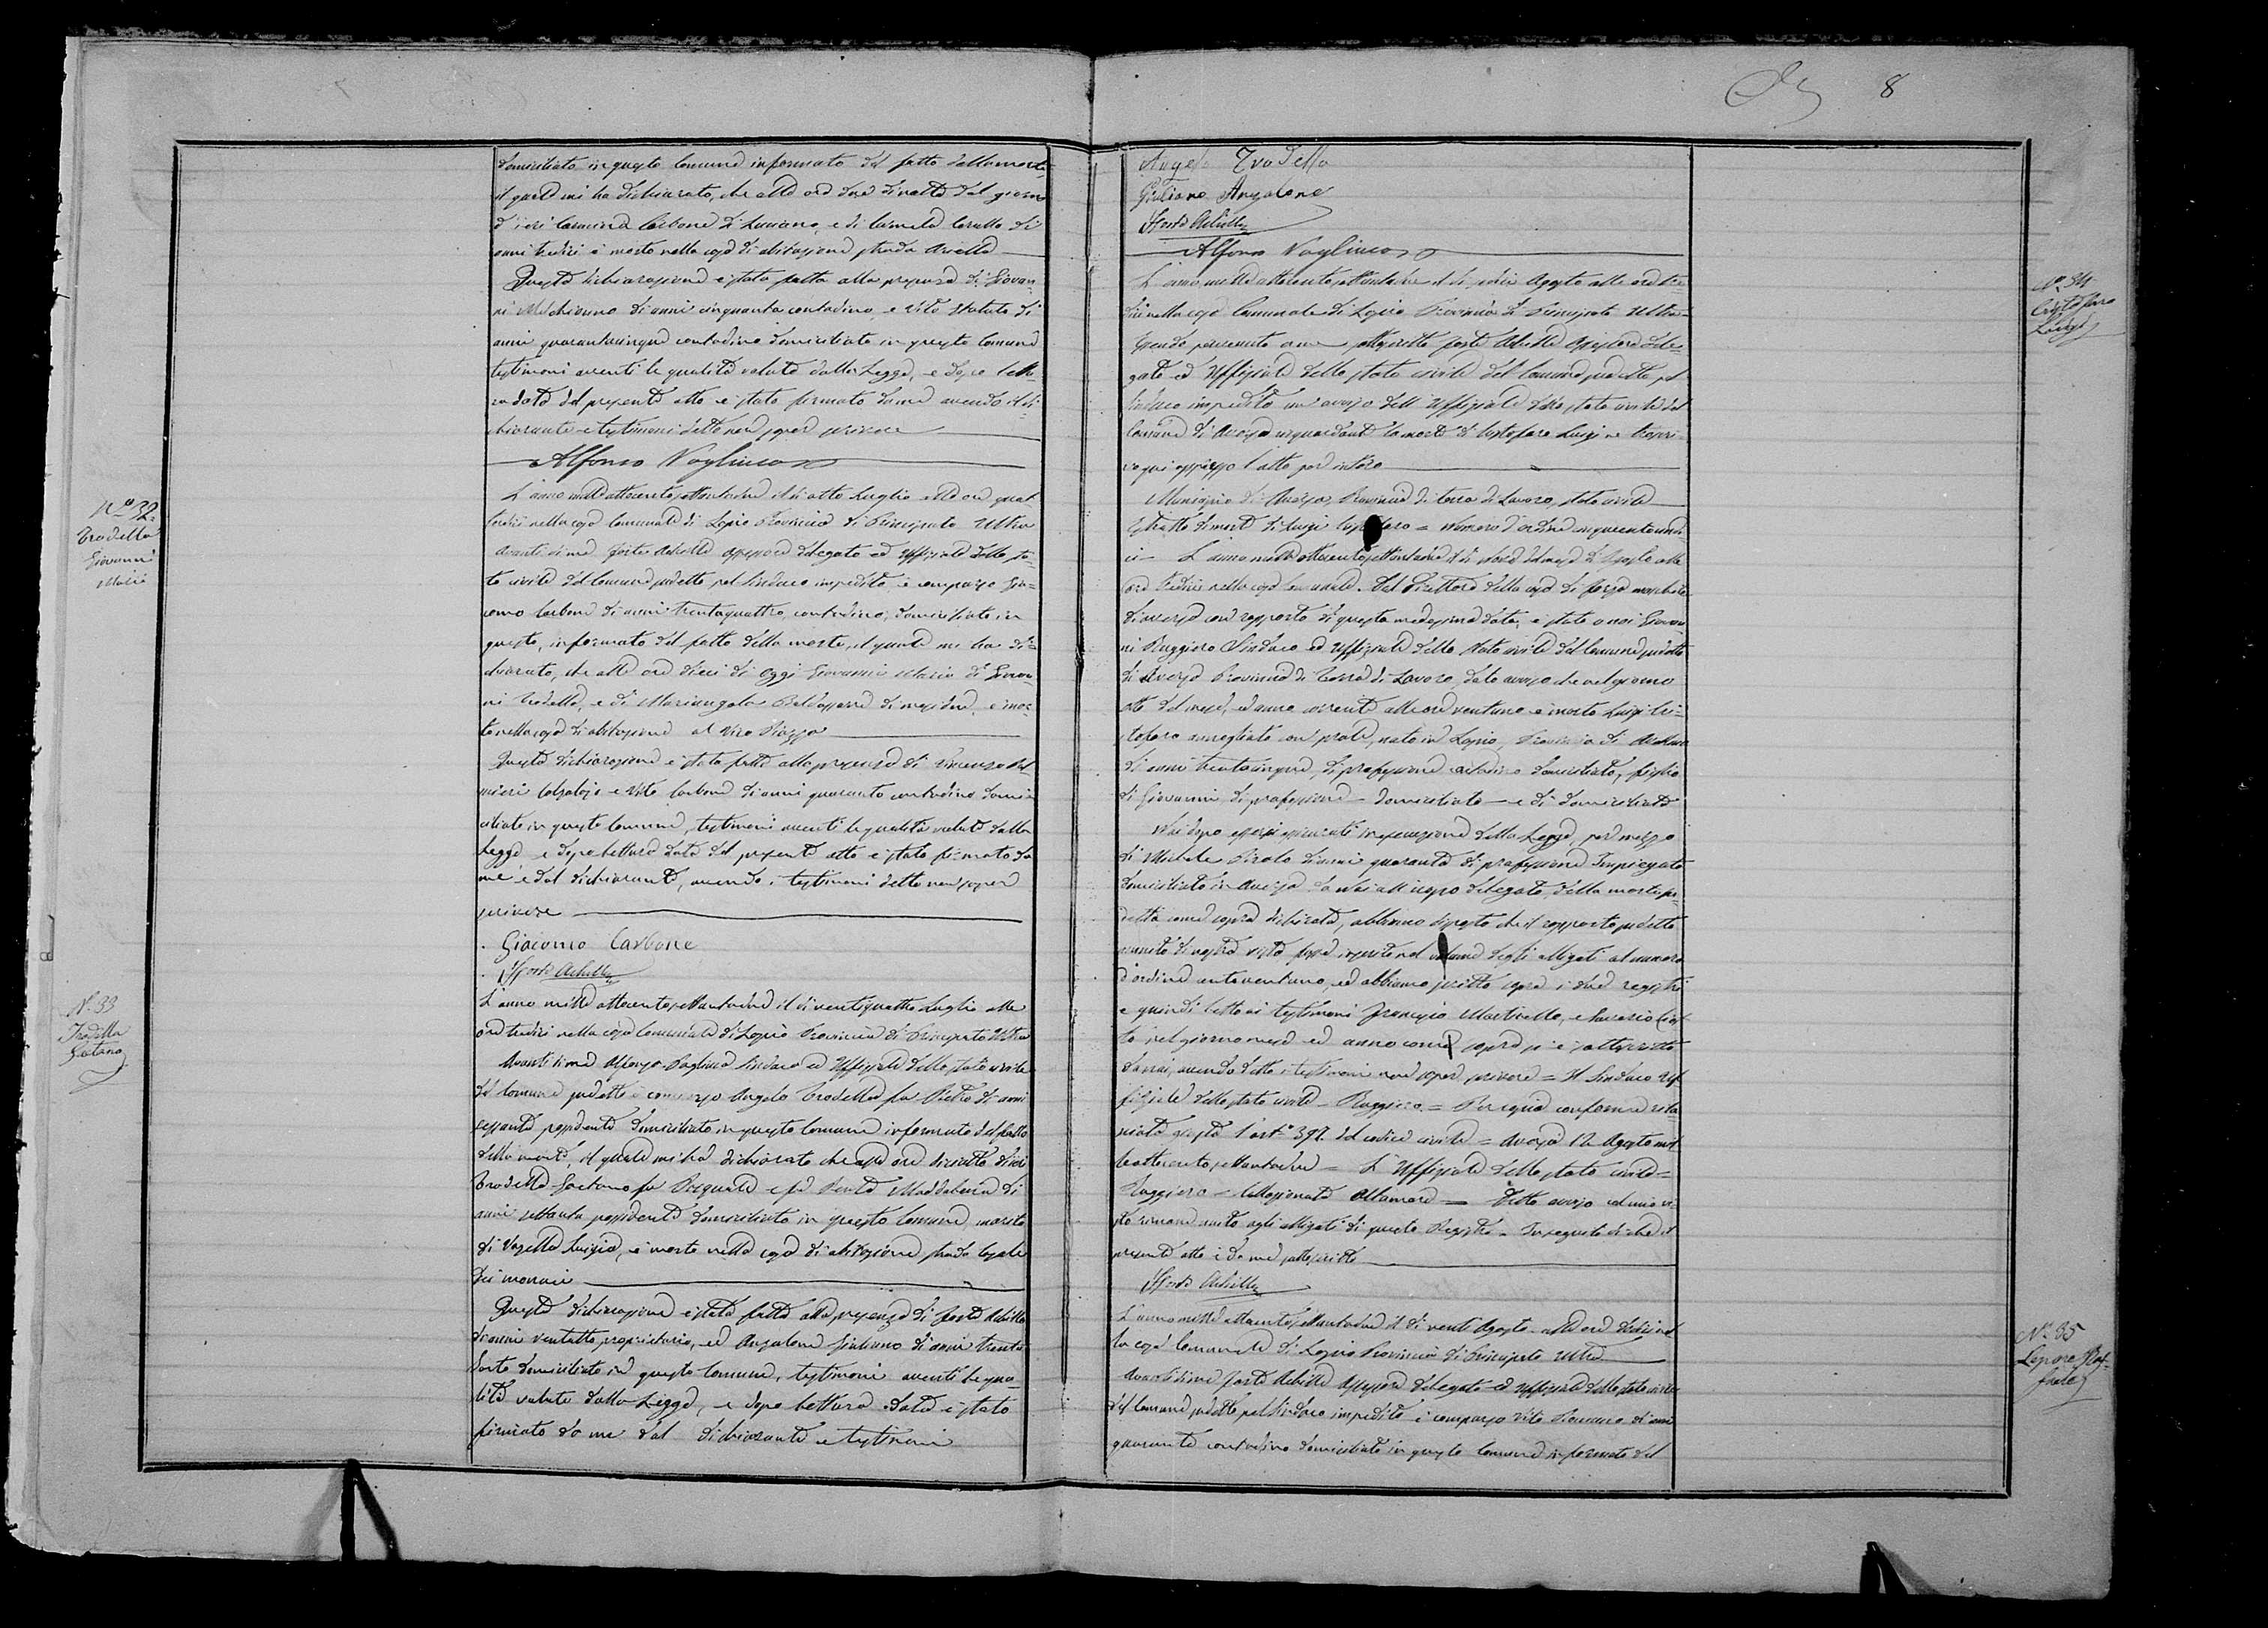 domiciliato in questo Comune informato del fatto della morte
il quale mi ha dichiarato, che alle ore due di notte del giorno
d'ieri Carbone di Luciano, e di Carmela di
anni tredici è morto nella casa di abitazione strada
Questa dichiarazione è stata fatta alla presenza di Giovan-
ni di anni cinquanta contadino, e Vito di
anni quarantacinque contadino domiciliati in questo Comune
testimoni aventi le qualità volute dalla Legge, e dopo lettu-
ra data del presente atto è stato firmato da me avendo il di-
chiarante e testimoni detto non saper scrivere
Alfonso Vagliuca
N.º 32
Trodella
Giovanni
Maria
L'anno milleottocentosettantadue il dì otto Luglio alle ore quat
tordici nella casa Comunale di Lapio Provincia di Principato Ultra
Avanti di me Forte Achille assessore delegato ed Uffiziale dello sta-
to civile del Comune sudetto pel Sindaco impedito, è comparso Gia-
como Carbone di anni trentaquattro, contadino, domiciliato in
questo, informato del fatto della morte, il quale mi ha di-
chiarato, che alle ore dieci di oggi Giovanni Maria di Giovan-
ni Trodella, e di Mariangela di mesi due, è mor-
to nella casa di abitazione al Vico Piazza
Questa dichiarazione è stata fatta alla presenza di Vincenzo
calzolajo e Vito Carbone di anni quaranta contadino domi-
ciliati in questo Comune, testimoni aventi le qualità volute dalla
Legge e dopo lettura data del presente atto è stato firmato da
me e dal dichiarante, avendo i testimoni detto non saper
scrivere
Giacomo Carbone
Forte Achille
N.º 33
Trodella
Gaetano
L'anno milleottocentosettantadue il dì ventiquattro Luglio alle
ore tredici nella casa Comunale di Lapio Provincia di Principato Ultra
Avanti di me Alfonso Vagliuca Sindaco ed Uffiziale dello stato civile
del Comune sudetto è comparso Angelo Trodella fu Pietro di anni
sessanta possidente domiciliato in questo Comune informato del fatto
della morte, il quale mi ha dichiarato che alle ore diciotto di ieri
Trodella Gaetano fu Pasquale e fu Maddalena di
anni settanta possidente domiciliato in questo Comune, marito
di Luigia, è morto nella casa di abitazione strada
dei monaci
Questa dichiarazione è stata fatta alla presenza di Forte Achille
di anni ventotto, proprietario, ed Anzalone Giuliano di anni trenta
Sarto domiciliati in questo Comune, testimoni aventi le qua-
lità volute dalla Legge, e dopo lettura data è stato
firmato da me dal dichiarante e testimoni
8
Angelo Trodella
Giuliano Anzalone
Forte Achille
Alfonso Vagliuca
N.º 34
Cristofaro
Luigi
L'anno milleottocentosettantadue il dì Agosto alle ore tre-
dici nella casa Comunale di Lapio Provincia di Principato Ultra
Essendo pervenuto a me sottoscritto Forte Achille Assessore dele-
gato ed Uffiziale dello stato civile del Comune sudetto pel
Sindaco impedito un avviso dell'Uffiziale dello stato civile del
Comune di Aversa riguardante la morte di Cristofaro Luigi ne trascri-
vo qui appresso l'atto per intero
Municipio di Aversa, Provincia di Terra di Lavoro, stato civile
Estratto di morte di Luigi = Numero d'ordine
L'anno milleottocentosettantadue il dì nove del mese di Agosto alle
ore tredici nella casa comunale. Dal Direttore della casa di forza
di Aversa con rapporto di questa medesima data, è stato a noi Giovan-
ni Ruggiero Sindaco ed Uffiziale dello stato civile del Comune sudetto
di Aversa Provincia di Terra di Lavoro, dato avviso che nel giorno
otto del mese, ed anno corrente alle ore ventuno è morto Luigi Cri-
stofaro nato in Lapio, Provincia di Avellino
di anni trentacinque, di professione contadino domiciliato, figlio
di Giovanni, di professione — domiciliato — e di domiciliata
Noi dopo esserci assicurati in esecuzione della Legge, per mezzo
di Michele di anni quaranta di professione Impiegato
domiciliato in Aversa da Noi all'uopo delegato, della morte su-
detta come sopra dichiarata, abbiamo disposto che il rapporto sudetto
munito di nostro visto fosse inserito nel volume degli allegati al numero
d'ordine centoventuno, ed abbiamo scritto sopra i due registri
e quindi letto ai testimoni Francesco Martiello, e Saverio
nel giorno mese ed anno come sopra si è sottoscritto
da noi, avendo detto i testimoni non saper scrivere = Il Sindaco Uf-
fiziale dello stato civile — Ruggiero = Per copia conforme rila-
sciata giusta l'art.º 397 del codice civile = Aversa 12 Agosto mil-
leottocentosettantadue = L'Uffiziale dello stato civile =
Ruggiero = Collazionato Altamare = Detto avviso col mio vi-
sto rimane unito agli allegati di questo Registro. In seguito di che il
presente atto è da me sottoscritto
Forte Achille
N.º 35
Lepore Raf-
faele
L'anno milleottocentosettantadue il dì venti Agosto alle ore dodici nel-
la casa Comunale di Lapio Provincia di Principato Ultra
Avanti di me Forte Achille Assessore delegato ed Uffiziale dello stato civile
del Comune sudetto pel Sindaco impedito è comparso Vito di anni
quaranta contadino domiciliato in questo Comune informato del